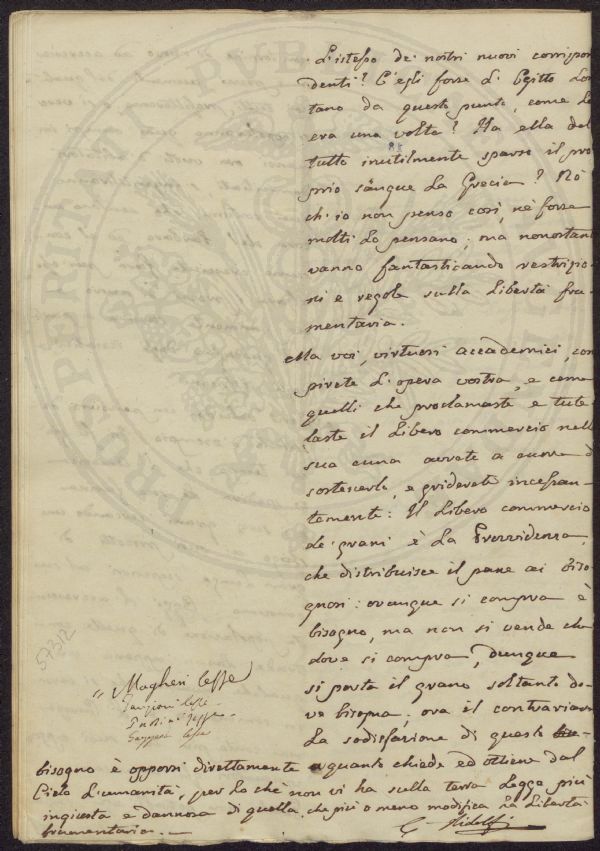 L'istesso de' nostri nuovi corrispon
denti? C'egli forse L'Egitto Lon
tano da questo punto, come Lo
era una volta? Ha ella del
tutto inutilmente sparso il pro
prio sangue La Grecia? Nò
ch'io non penso così, nè forse
molti Lo pensano; ma nonostan
vanno fantasticando restrizio
ni e regole sulla Libertà fru
mentaria.
Ma voi, virtuosi accademici, com
pirete L'opera vostra, e come
quelli che proclamaste e tute
laste il Libero commercio nell
sua cuna avrete a cuore d
sostenerlo, e griderete incessan
temente: Il Libero commercio
de' grani è La Provvidenza,
che distribuisce il pane ai biso
gnosi: ovunque si compra è
bisogno, ma non si vende che
dove si compra, dunque
si porta il grano soltanto do
ve bisogna; ora il contrariare
La sodisfazione di questo
bisogno è opporsi direttamente a quanto chiede ed ottiene dal
Cielo L'umanità, per Lo che non vi ha sulla terra Legge più
ingiusta e dannosa di quella, che più o meno modifica La Libertà
frumentaria. —
Magheri Lesse
Lesse
Lesse
Gazzeri Lesse
C. Ridolfi
57312
PROSPERITATI PUBLI